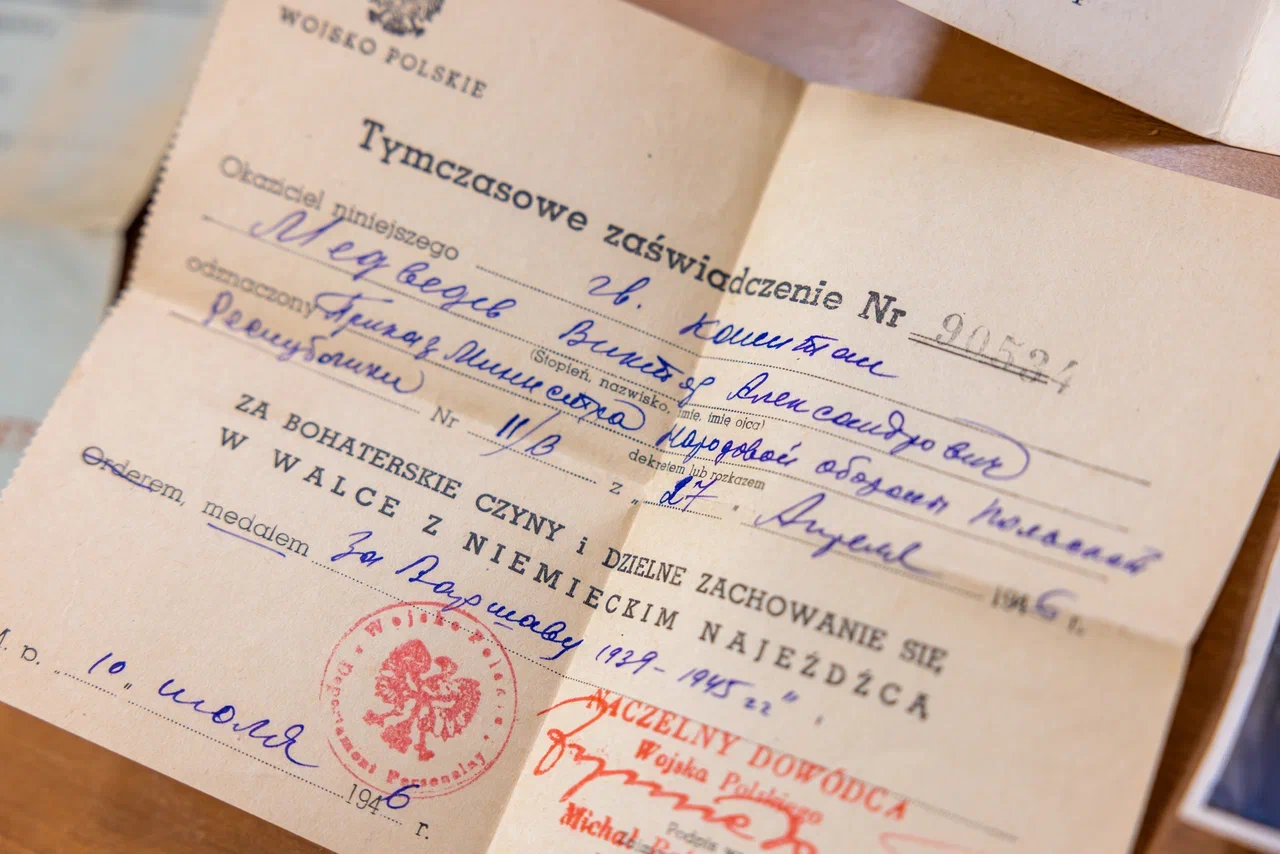 WOJSKO POLSKIE
Tymczasowe zaświadczenie Nr 90534
Okaziciel niniejszego гв. капитан
Медведев Виктор Александрович
(Stopień, nazwisko, imię, imię ojca)
odznaczony Приказ Министра Народовой обороны Польской
dekretem lub rozkazem
Республики Nr 11/В z „27„ Апреля 1946 r.
ZA BOHATERSKIE CZYNY i DZIELNE ZACHOWANIE SIĘ
W WALCE Z NIEMIECKIM NAJEŹDŹCĄ
Orderem, medalem За Варшаву 1939-1945 гг".
M. p. „10„ июля 1946 r.
Wojsko Polskie
Departament Personalny
NACZELNY DOWÓDCA
Wojska Polskiego
Podpis
Michał